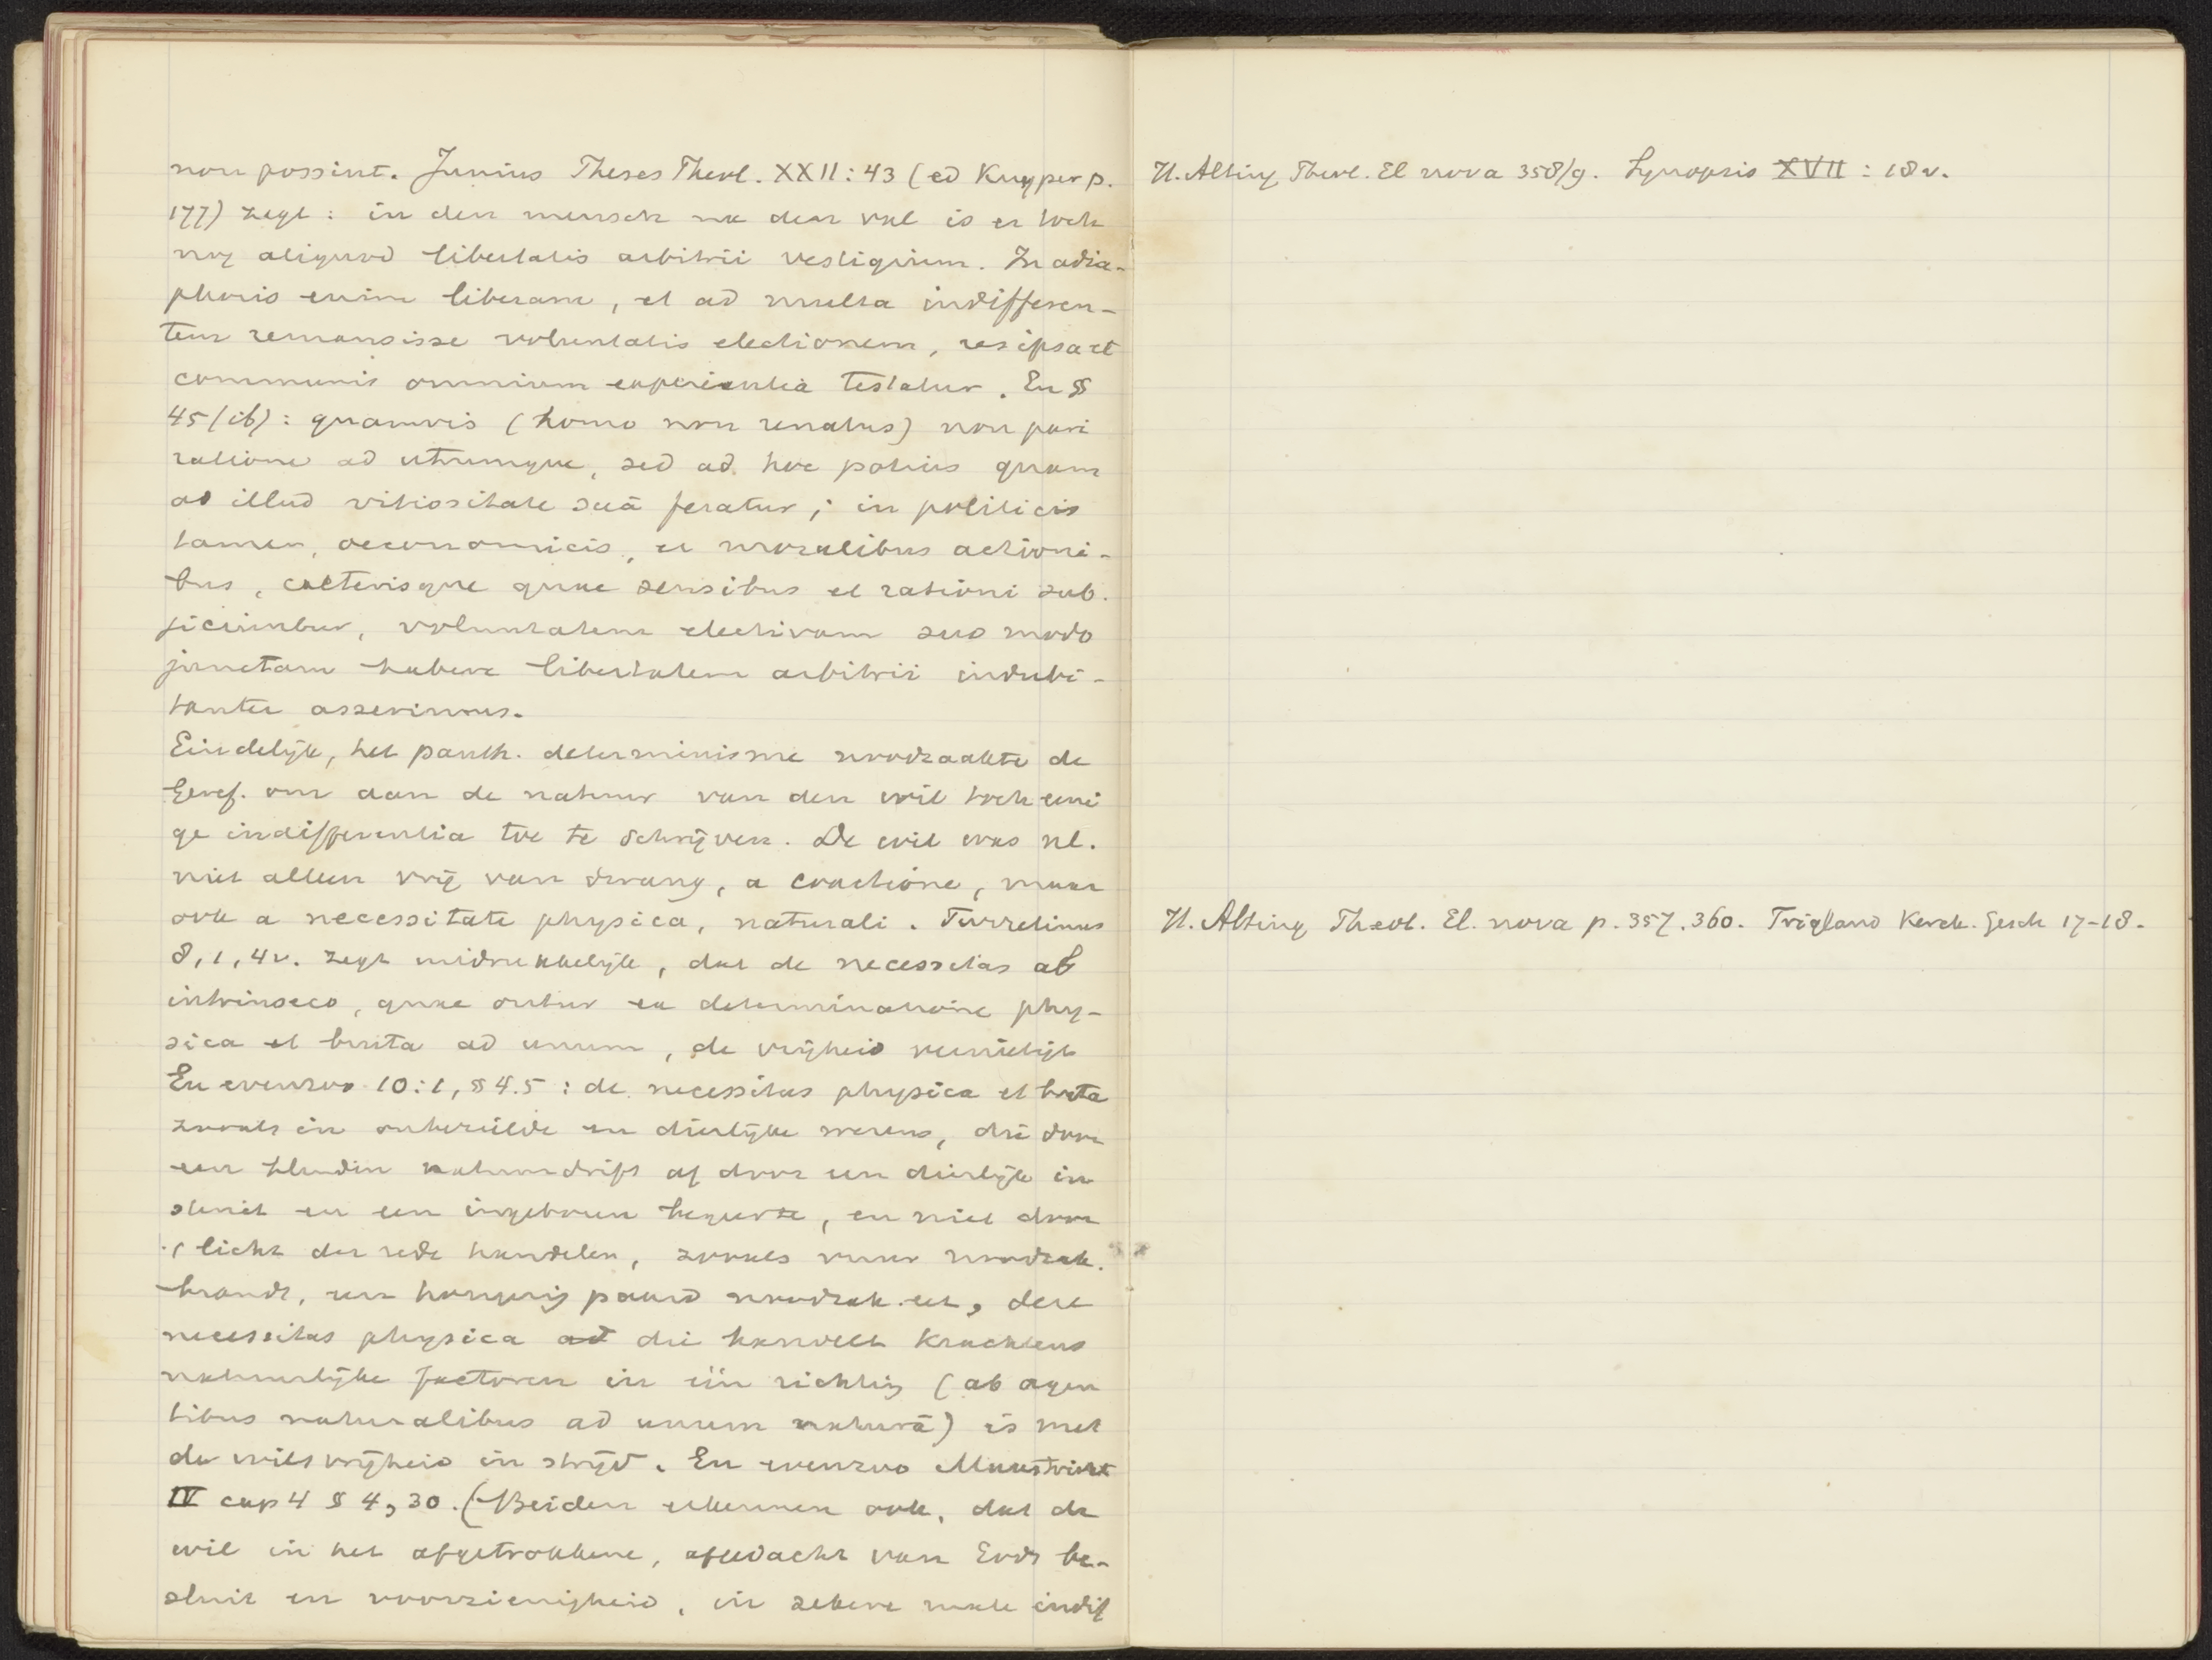 non possint. Junius Theses Theol. XXII : 43 (ed Kuyper p.
177) zegt : in den mensch na den val is er toch
nog aliquod libertatis arbitrii vestigium. In adia-
phoris enim liberam, et ad multa indifferen-
tem remansisse voluntatis electionem, res ipsa et
communis omnium experientia testatur. En §
45 (ib) : quamvis (homo non renatus) non pari
ratione ad utrumque, sed ad hoc potius quam
ad illud vitiositate suâ feratur; in politicis
tamen, oeconomicis, et moralibus actioni-
bus, caeterisque quae sensibus et rationi sub-
jiciuntur, voluntatem electivam suo modo
junctam habere libertatem arbitrii indubi-
tanter asserimus.
Eindelijk, het panth. determinisme noodzaakte de
Geref. om aan de natuur van den wil toch eeni
ge indifferentia toe te schrijven. De wil was nl.
niet alleen vrij van dwang, a coactione, maar
ook a necessitate physica, naturali. Turretinus
8, 1, 4v. zegt uitdrukkelijk, dat de necessitas ab
intrinseco, quae oritur ex determinatione phy-
sica et bruta ad unum, de vrijheid vernietigt
En evenzoo 10:1, § 4.5 : de necessitas physica et bruta
zooals in onbezielde en dierlijke wezens, die door
een blinden natuurdrift of door een dierlijk in
stinct en een ingeboren begeerte, en niet door
't licht der rede handelen, zooals vuur noodzak.
brandt, een hongerig paard noodzak. eet, deze
necessitas physica die handelt krachtens
natuurlijke factoren in één richting (ab agen
tibus naturalibus ad unum naturâ) is met
de wilsvrijheid in strijd. En evenzoo Maastricht
IV cap 4 § 4, 30. (Beiden erkennen ook, dat de
wil in het afgetrokkene, afgedacht van Gods be-
sluit en voorzienigheid, in zekere mate indif
H. Alting Theol. El nova 358/9. Synopsis XVII : 18 v.
H. Alting Theol. El. nova p. 357. 360. Trigland Kerck. Gesch 17-18.